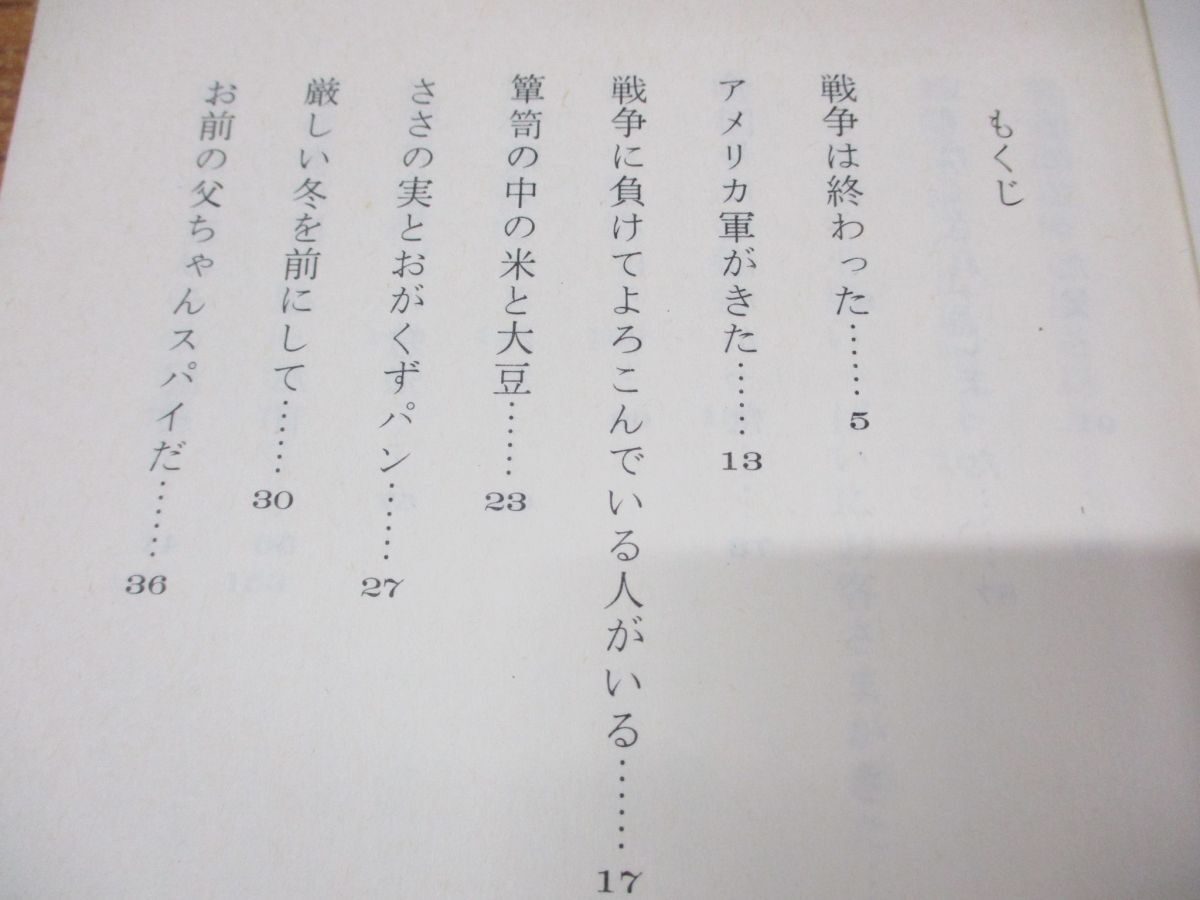 もくじ
戦争は終わった……5
アメリカ軍がきた……13
戦争に負けてよろこんでいる人がいる……17
簞笥の中の米と大豆……23
ささの実とおがくずパン……27
厳しい冬を前にして……30
お前の父ちゃんスパイだ……36